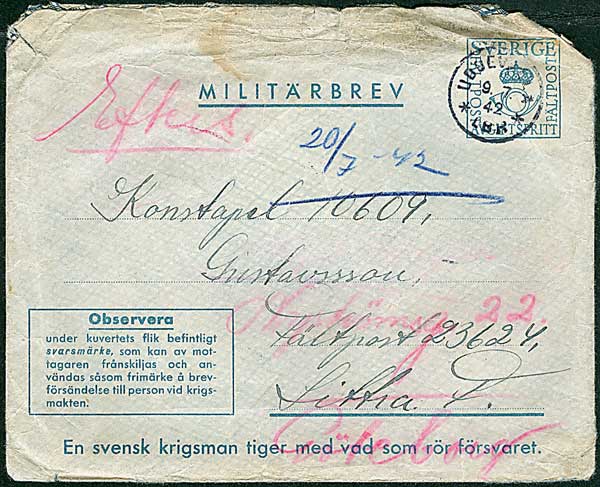 SVERIGE
FÄLTPOST
AVGIFTSFRITT
MILITÄRBREV
Efters.
20/7 -42
Konstapel 10609,
Gustavsson,
22.
Fältpost 23624,
Littra. F.
Göteborg
Observera
under kuvertets flik befintligt
svarsmärke, som kan av mot-
tagaren frånskiljas och an-
vändas såsom frimärke å brev-
försändelse till person vid krigs-
makten.
En svensk krigsman tiger med vad som rör försvaret.